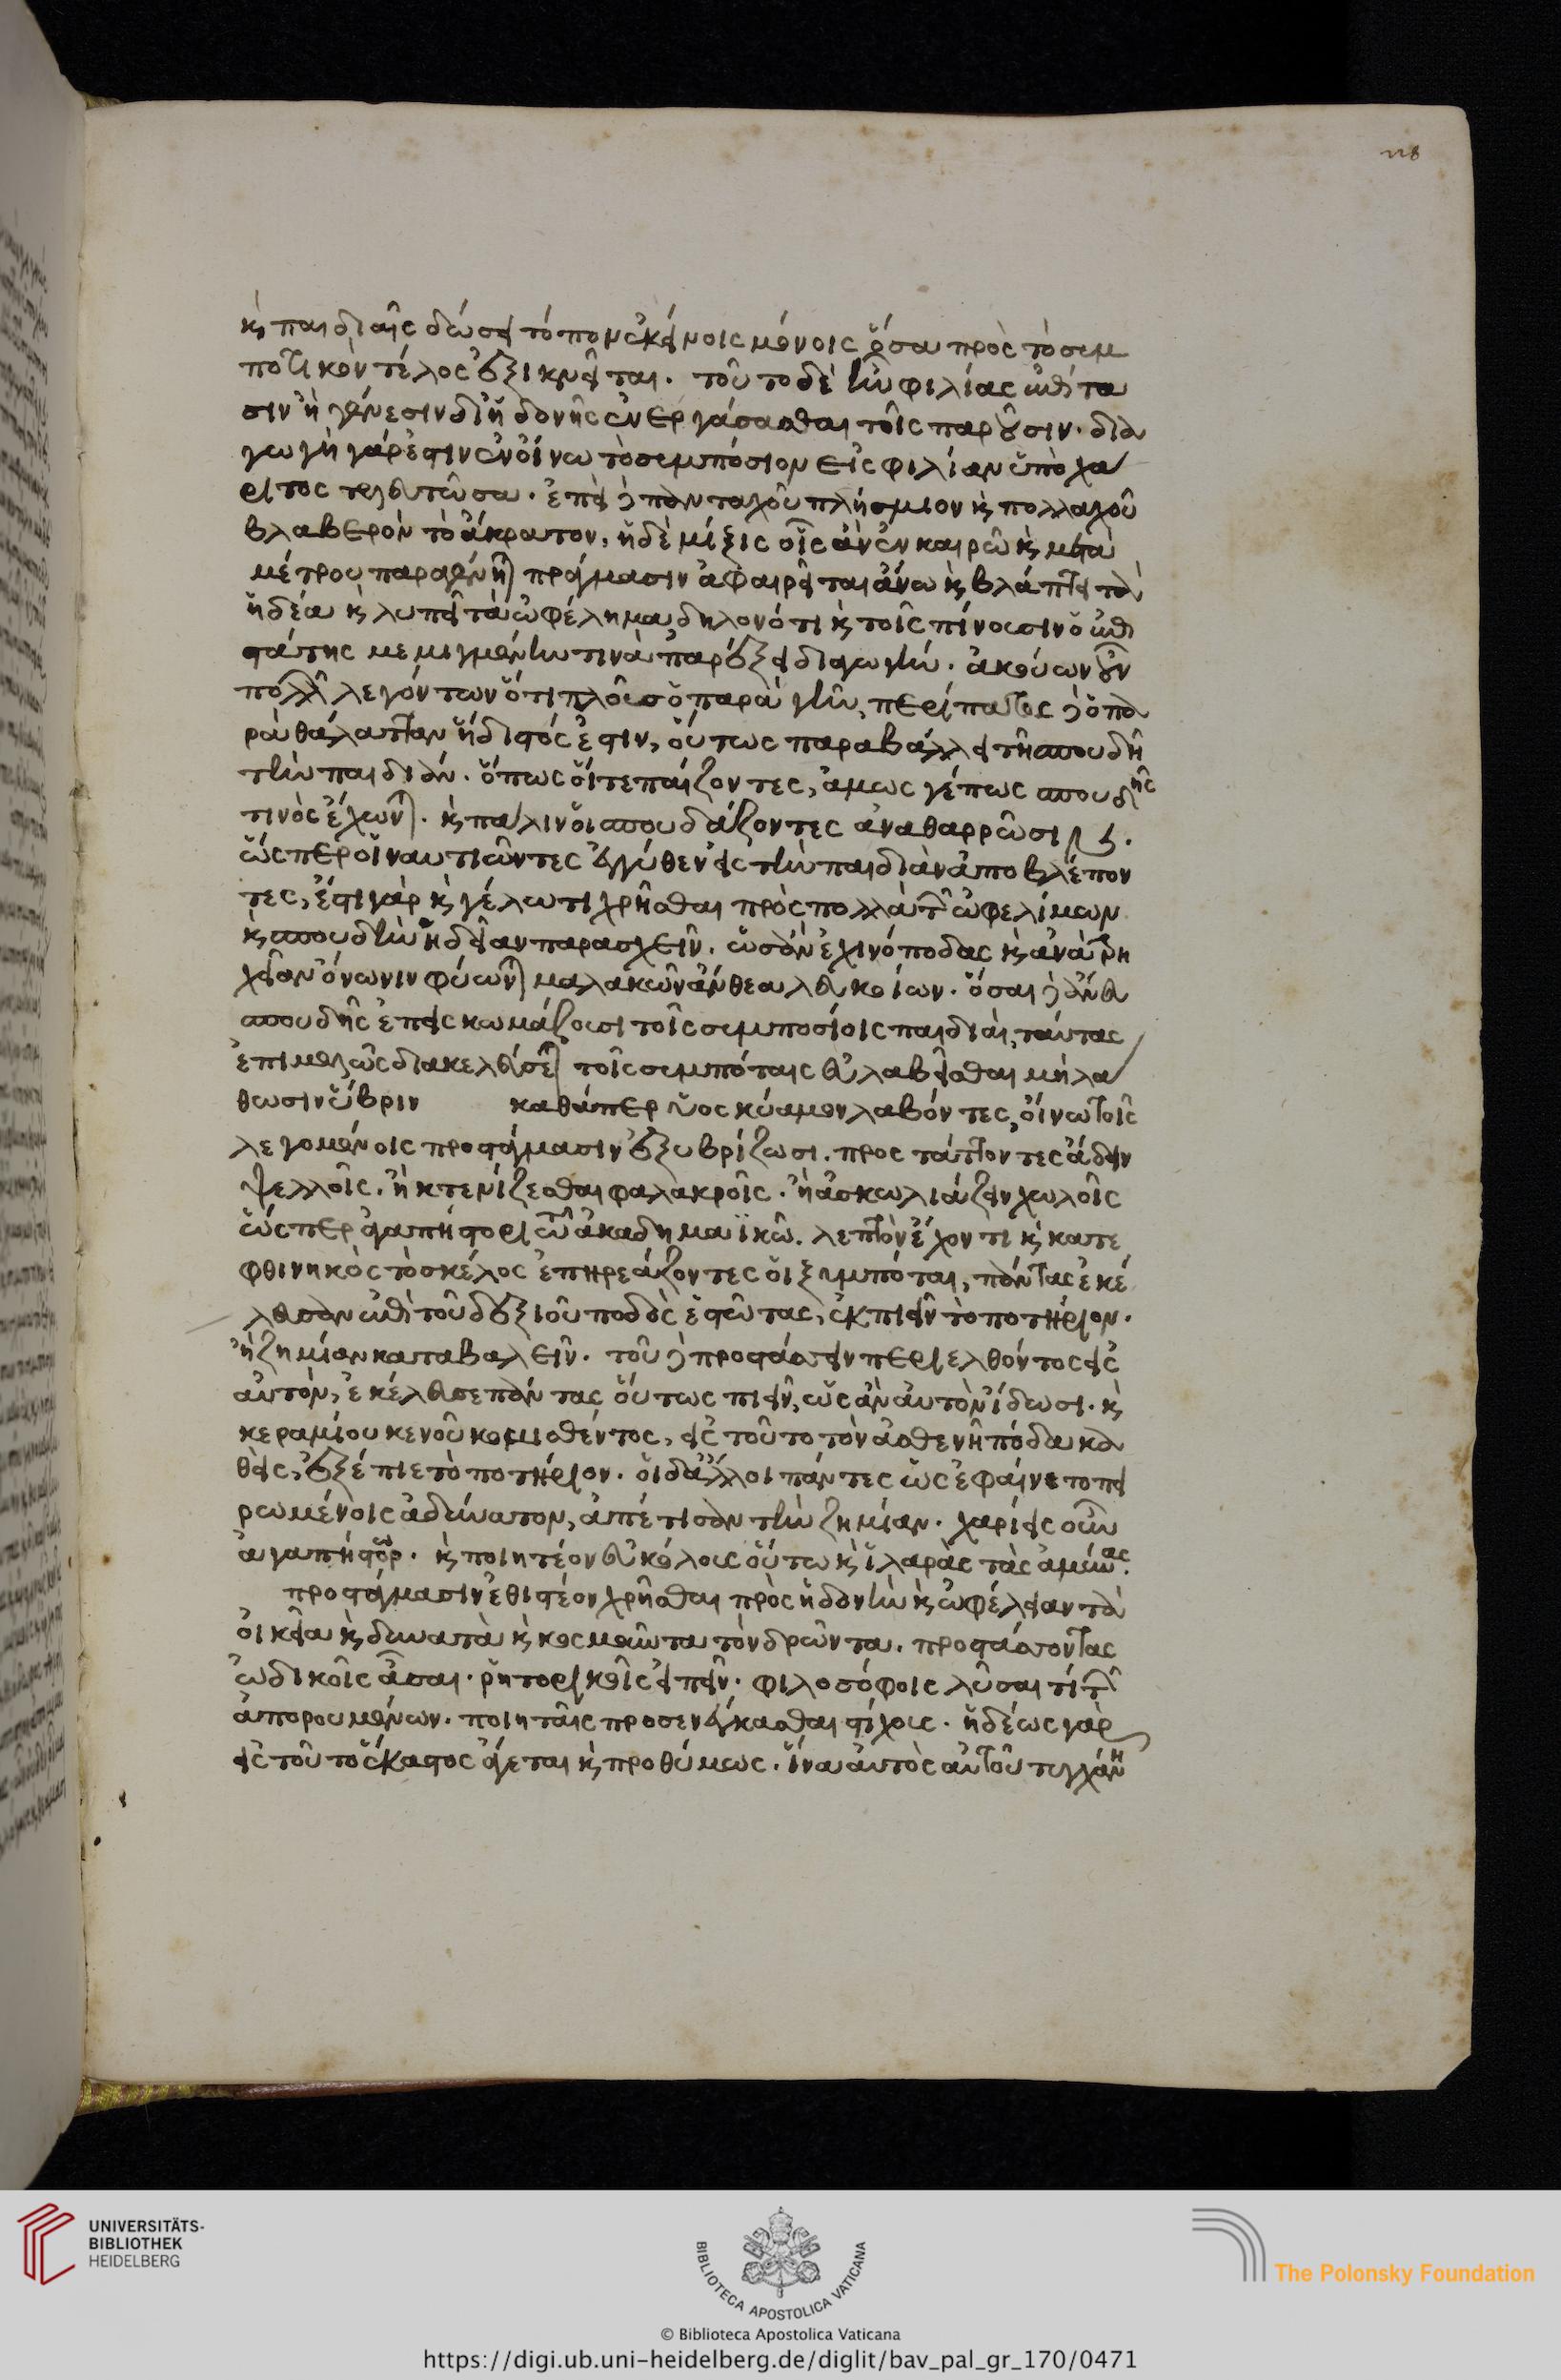 228
κ παιδιαῖς δώσει τόπον ἐκείνοις μόνοις ὅσα πρὸς τὸ συμ
ποτικὸν τέλος ἐξικνεῖται. τοῦτο δὲ ἦν φιλίας ἐπίτα
σιν ἢ γένεσιν δι' ἡδονῆς ἐνεργάσασθαι τοῖς παροῦσιν. δια
γωγὴ γάρ ἐστιν ἐν οἴνω τὸ συμπόσιον εἰς φιλίαν ὑπὸ χά
ριτος τελευτῶσα. ἐπεὶ δὲ πανταχοῦ πλήσμιον κ πολλαχοῦ
βλαβερὸν τὸ ἄκρατον, ἡ δὲ μίξις οἷς ἂν ἐν καιρῶ κ μετὰ
μέτρου παραγένηται πράγμασιν ἀφαιρεῖται ἄνω κ βλάπτει τὰ
ἡδέα κ λυπεῖ τὰ ὠφέλημα δηλονότι κ τοῖς πίνουσιν ὁ ἐπι
στάτης μεμιγμένην τινὰ παρέξει διαγωγήν. ἀκούων οὖν
πολλῶν λεγόντων ὅτι πλοῦς ὁ παρὰ γῆν, περίπατος δ ὁ πα
ρὰ θάλατταν ἥδιστός ἐστιν, οὕτως παραβάλλει τῆ σπουδῆ
τὴν παιδιάν. ὅπως οἵ τε παίζοντες, ἁμῶς γέ πως σπουδῆς
τινὸς ἔχωνται. κ πάλιν οἱ σπουδάζοντες ἀναθαρρῶσι
ὥσπερ οἱ ναυτιῶντες ἐγγύθεν εἰς τὴν παιδιὰν ἀποβλέπον
τες, ἔστι γὰρ κ γέλωτι χρῆσθαι πρὸς πολλὰ τῶν ὠφελίμων
κ σπουδὴν ἡδεῖαν παρασχεῖν. ὡς ἀν' ἐχινόποδας κ ἀνὰ τρη
χεῖαν ὄνωνιν φύωνται μαλακῶν ἄνθεα λευκοίων. ὅσαι δ ἄνευ
σπουδῆς ἐπεισκωμάζουσι τοῖς συμποσίοις παιδιαί, ταύτας
ἐπιμελῶς διακελεύσεται τοῖς συμπόταις εὐλαβεῖσθαι μὴ λά
θωσιν ὕβριν καθάπερ ὑοσκύαμον λαβόντες, οἴνω τοῖς
λεγομένοις προστάγμασιν ἐξυβρίζωσι. προστάττοντες ἄδειν
ψελλοῖς. ἢ κτενίζεσθαι φαλακροῖς. ἢ ἀσκωλιάζειν χωλοῖς
ὥσπερ ἀγαπήστορι τῶ ἀκαδημαϊκῶ. λεπτὸν ἔχοντι κ κατε
φθινηκὸς τὸ σκέλος ἐπηρεάζοντες οἱ ξυμπόται, πάντας ἐκέ
λευσαν ἐπὶ τοῦ δεξιοῦ ποδὸς ἑστῶτας, ἐκπιεῖν τὸ ποτήριον.
ἢ ζημίαν καταβαλεῖν. τοῦ δ προστάσσειν περιελθόντος εἰς
αὐτὸν, ἐκέλευσε πάντας οὕτως πιεῖν, ὡς ἂν αὐτὸν ἴδωσι. κ
κεραμίου κενοῦ κομισθέντος, εἰς τοῦτο τὸν ἀσθενῆ πόδα κα
θεὶς, ἐξέπιε τὸ ποτήριον. οἱ δ ἄλλοι πάντες ὡς ἐφαίνετο πει
ρωμένοις ἀδύνατον, ἀπέτισαν τὴν ζημίαν. χαρίεις οὖν
ἀγαπήστωρ. κ ποιητέον εὐκόλους οὕτω κ ἱλαρὰς τὰς ἀμύνας.
προστάγμασιν ἐθιστέον χρῆσθαι πρὸς ἡδονὴν κ ὠφέλειαν τὰ
οἰκεῖα κ δυνατὰ κ κοσμοῦντα τὸν δρῶντα. προστάσσοντας
ὠδικοῖς ᾆσαι. ῥητορικοῖς εἰπεῖν. φιλοσόφοις λῦσαι τί τῶν
ἀπορουμένων. ποιηταῖς προσενέγκασθαι στίχους. ἡδέως γὰρ
εἰς τοῦτο ἕκαστος ἄγεται κ προθύμως. ἵνα αὐτὸς αὑτοῦ τυγχάνη
UNIVERSITÄTS-
BIBLIOTHEK
HEIDELBERG
BIBLIOTECA APOSTOLICA VATICANA
The Polonsky Foundation
© Biblioteca Apostolica Vaticana
https://digi.ub.uni-heidelberg.de/diglit/bav_pal_gr_170/0471